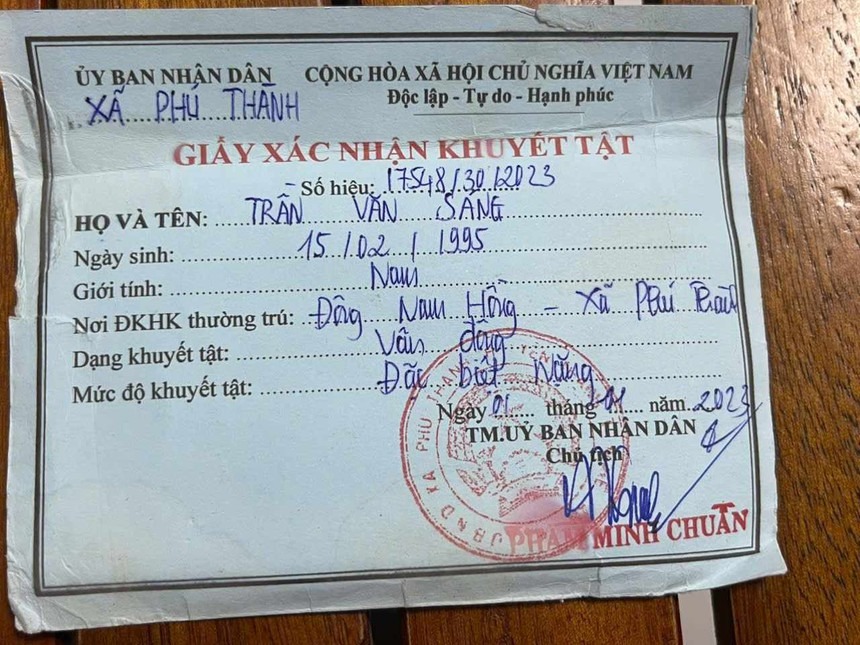 ỦY BAN NHÂN DÂN CỘNG HÒA XÃ HỘI CHỦ NGHĨA VIỆT NAM
XÃ PHÚ THÀNH Độc lập - Tự do - Hạnh phúc
GIẤY XÁC NHẬN KHUYẾT TẬT
Số hiệu: 17548/30/2023
HỌ VÀ TÊN: TRẦN VĂN SANG
Ngày sinh: 15/02/1995
Giới tính: Nam
Nơi ĐKHK thường trú: Đông Nam Hồng - Xã Phú
Dạng khuyết tật: Vân động
Mức độ khuyết tật: Đặc biệt Nặng
Ngày 01 tháng 01 năm 2023
TM.UỶ BAN NHÂN DÂN
Chủ tịch
PHẠM MINH CHUẨN